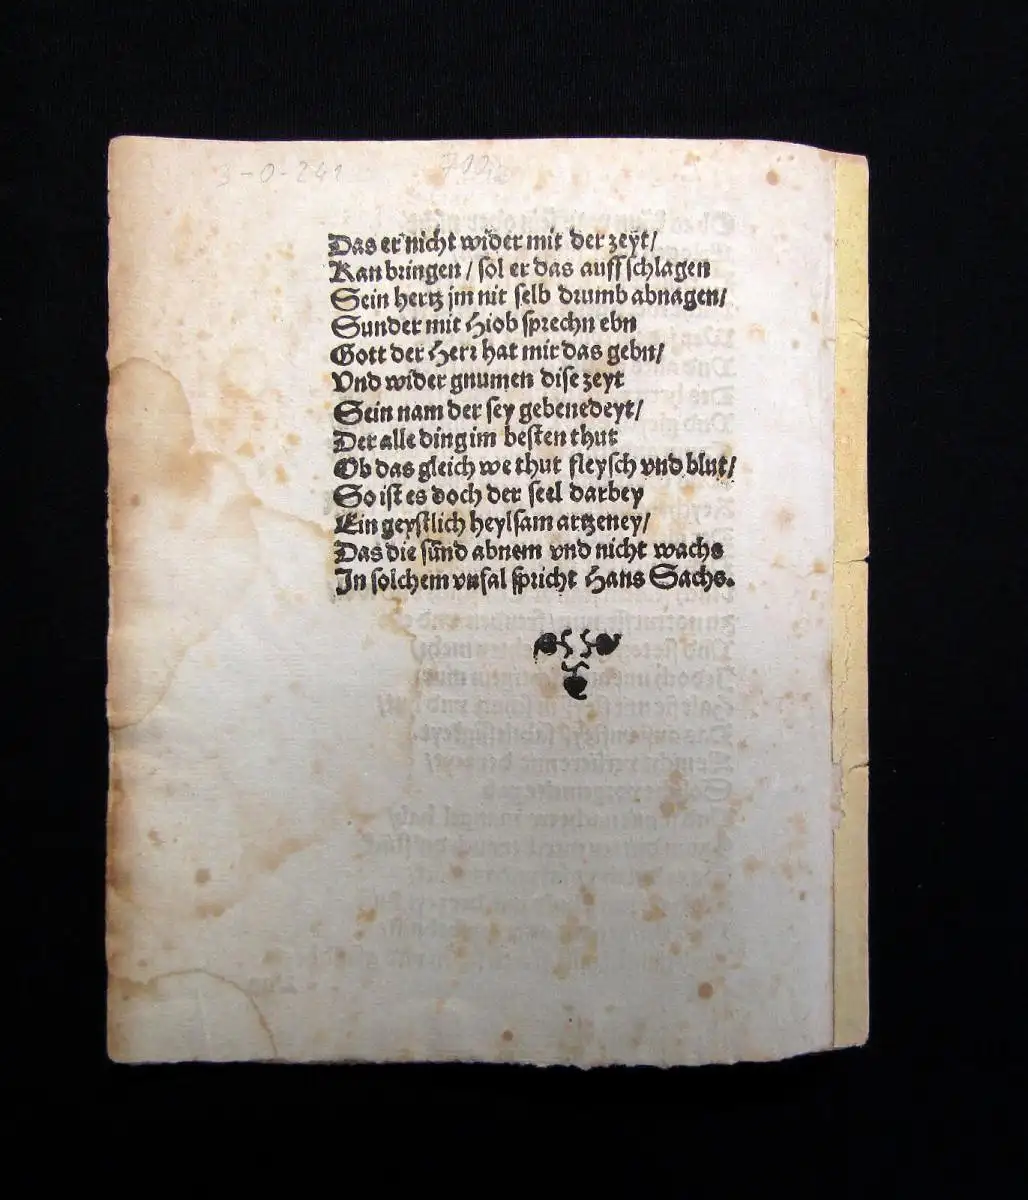 3-0-241
Das er nicht wider mit der zeyt/
Kan bringen / sol er das auff schlagen
Sein hertz jm nit selb drumb abnagen/
Sunder mit Hiob sprechn ebn
Gott der Herr hat mir das gebn/
Vnd wider gnumen dise zeyt
Sein nam der sey gebenedeyt/
Der alle ding im besten thut
Ob das gleich we thut fleysch vnd blut/
So ist es doch der seel darbey
Ein geystlich heylsam artzeney/
Das die sünd abnem vnd nicht wachs
In solchem vnfal spricht Hans Sachs.